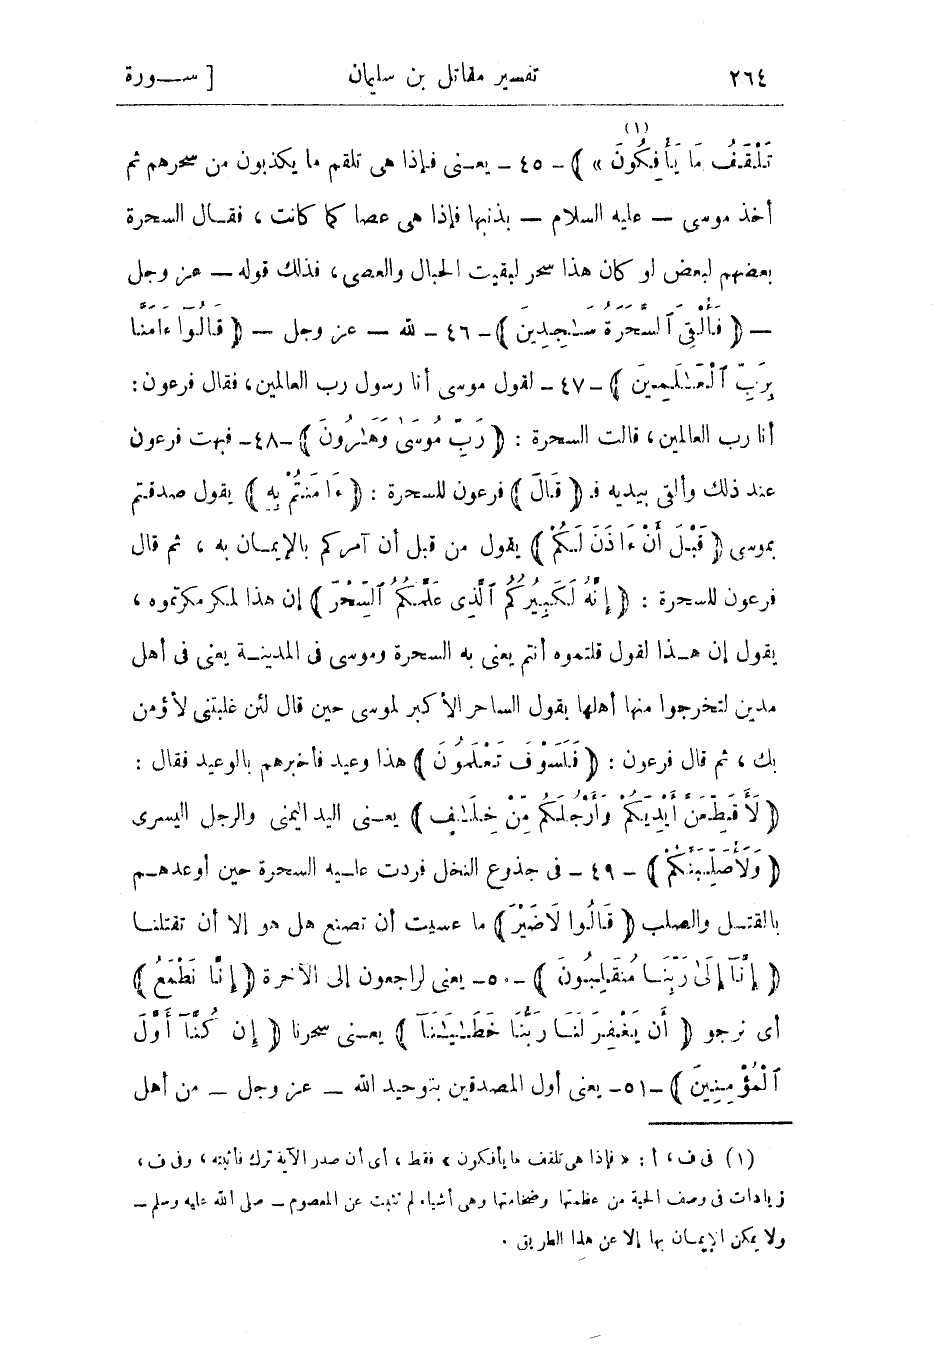 ٢٦٤ تفسير مقاتل بن سليمان [ ســورة
تَلْقَفُ مَا يَأْفِكُونَ » ) (١) - ٤٥ - يعـنى فإذا هى تلقم ما يكذبون من سحرهم ثم
أخذ موسى — عليه السلام — بذنبها فإذا هى عصا كما كانت ، فقـال السحرة
بعضهم لبعض لو كان هذا سحر لبقيت الحبال والعصى ، فذلك قوله — عـز وجل
— ( فَأُلْقِىَ ٱلسَّحَرَةُ سَـٰجِدِينَ ) - ٤٦ - لله — عز وجل — ( قَالُوٓا۟ ءَامَنَّا
بِرَبِّ ٱلْعَـٰلَمِينَ ) - ٤٧ - لقول موسى أنا رسول رب العالمين ، فقال فرعون :
أنا رب العالمين ، قالت السحرة : ( رَبِّ مُوسَىٰ وَهَـٰرُونَ ) -٤٨- فبهت فرعون
عند ذلك وألقى بيديه فـ ( قَالَ ) فرعون للسحرة : ( ءَامَنتُمْ بِهِ ) يقول صدقتم
بموسى ( قَبْلَ أَنْ ءَاذَنَ لَكُمْ ) يقول من قبل أن آمركم بالإيمـان به ، ثم قال
فرعون للسحرة : ( إِنَّهُ لَكَبِيرُكُمُ ٱلَّذِى عَلَّمَكُمُ ٱلسِّحْرَ ) إن هذا لمكر مكرتموه ،
يقول إن هـذا لقول قلتموه أنتم يعنى به السحرة وموسى فى المدينـة يعنى فى أهل
مدين لتخرجوا منها أهلها بقول الساحر الأكبر لموسى حين قال لئن غلبتنى لأؤمن
بك ، ثم قال فرعون : ( فَلَسَوْفَ تَعْلَمُونَ ) هذا وعيد فأخبرهم بالوعيد فقال :
( لَأُقَطِّعَنَّ أَيْدِيَكُمْ وَأَرْجُلَكُم مِّنْ خِلَـٰفٍ ) يعـنى اليد اليمنى والرجل اليسرى
( وَلَأُصَلِّبَنَّكُمْ ) - ٤٩ - فى جذوع النخل فردت عليـه السحرة حين أوعدهـم
بالقتـل والصلب ( قَالُوا لَا ضَيْرَ ) ما عسيت أن تصنع هل هو إلا أن تقتلنـا
( إِنَّآ إِلَىٰ رَبِّنَـا مُنقَلِبُونَ ) -٥٠- يعنى لراجعون إلى الآخرة ( إِنَّا نَطْمَعُ )
أى نرجو ( أَن يَغْفِرَ لَنَـا رَبُّنَا خَطَـٰيَـٰنَآ ) يعـنى سحرنا ( إِن كُنَّآ أَوَّلَ
ٱلْمُؤْمِنِينَ ) -٥١- يعنى أول المصدقين بتوحيد الله — عز وجل — من أهل
(١) فى ف ، أ : « فإذا هى تلقف ما يأفكون » فقط ، أى أن صدر الآية ترك فأثبته ، وفى ف ،
زيادات فى وصف الحية من عظمتها وضخامتها وهى أشياء لم تثبت عن المعصوم — صلى الله عليه وسلم —
ولا يمكن الإيمـان بها إلا عن هذا الطريق .